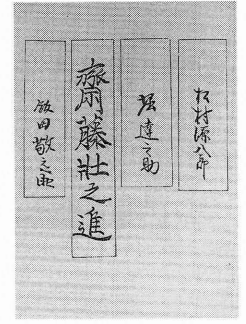 松村源八郎
堀達之助
齋藤壯之進
飯田敬之助